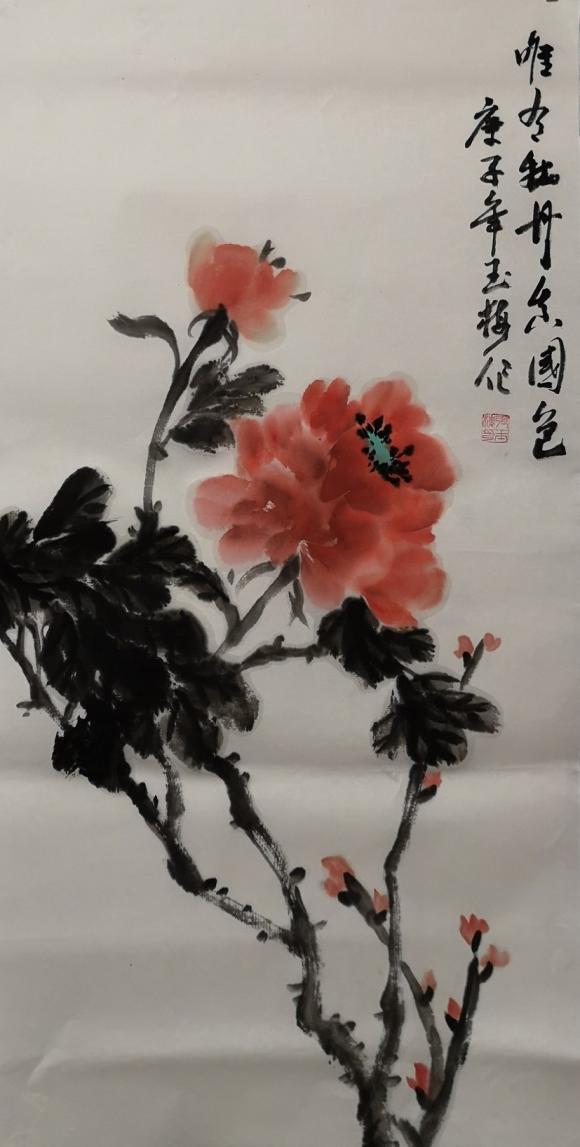 唯有牡丹真國色
庚子年玉梅作